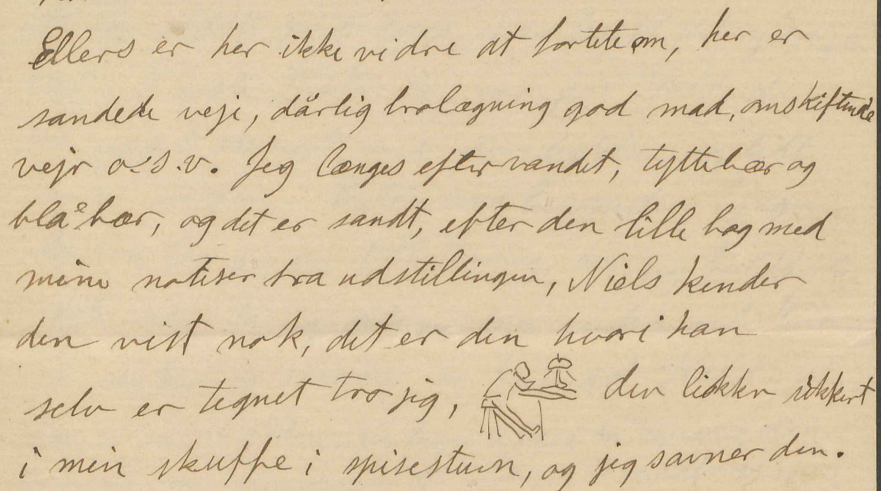 Ellers er her ikke vidre at fortele om, her er
sandede veje, dårlig brolægning god mad, omskiftende
vejr o.s.v. Jeg længes efter vandet, tyttebær og
blåbær, og det er sandt, efter den lille bog med
mine notiser fra udstillingen, Niels kender
den vist nok, det er den hvori han
selv er tegnet tro jeg, den likker sikkert
i min skuffe i spisestuen, og jeg savner den.